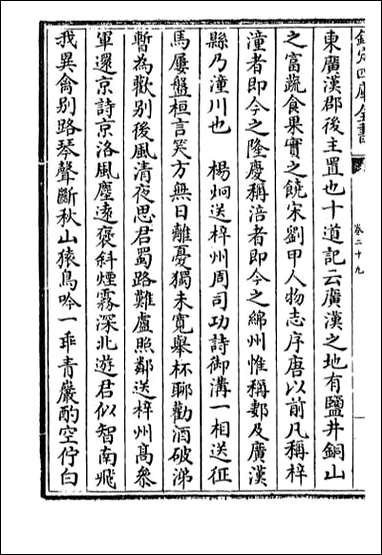 欽定四庫全書
卷二十九
東廣漢郡後主置也十道記云廣漢之地有鹽井銅山
之富蔬食果實之饒宋劉甲人物志序唐以前凡稱梓
潼者即今之隆慶稱涪者即今之綿州惟稱郪及廣漢
縣乃潼川也　楊炯送梓州周司功詩御溝一相送征
馬屢盤桓言笑方無日離憂獨未寬舉杯聊勸酒破涕
暫為歡別後風清夜思君蜀路難盧照鄰送梓州高叅
軍還京詩京洛風塵遠褒斜煙霧深北遊君似智南飛
我異禽別路琴聲斷秋山猿鳥吟一乖青巖酌空佇白